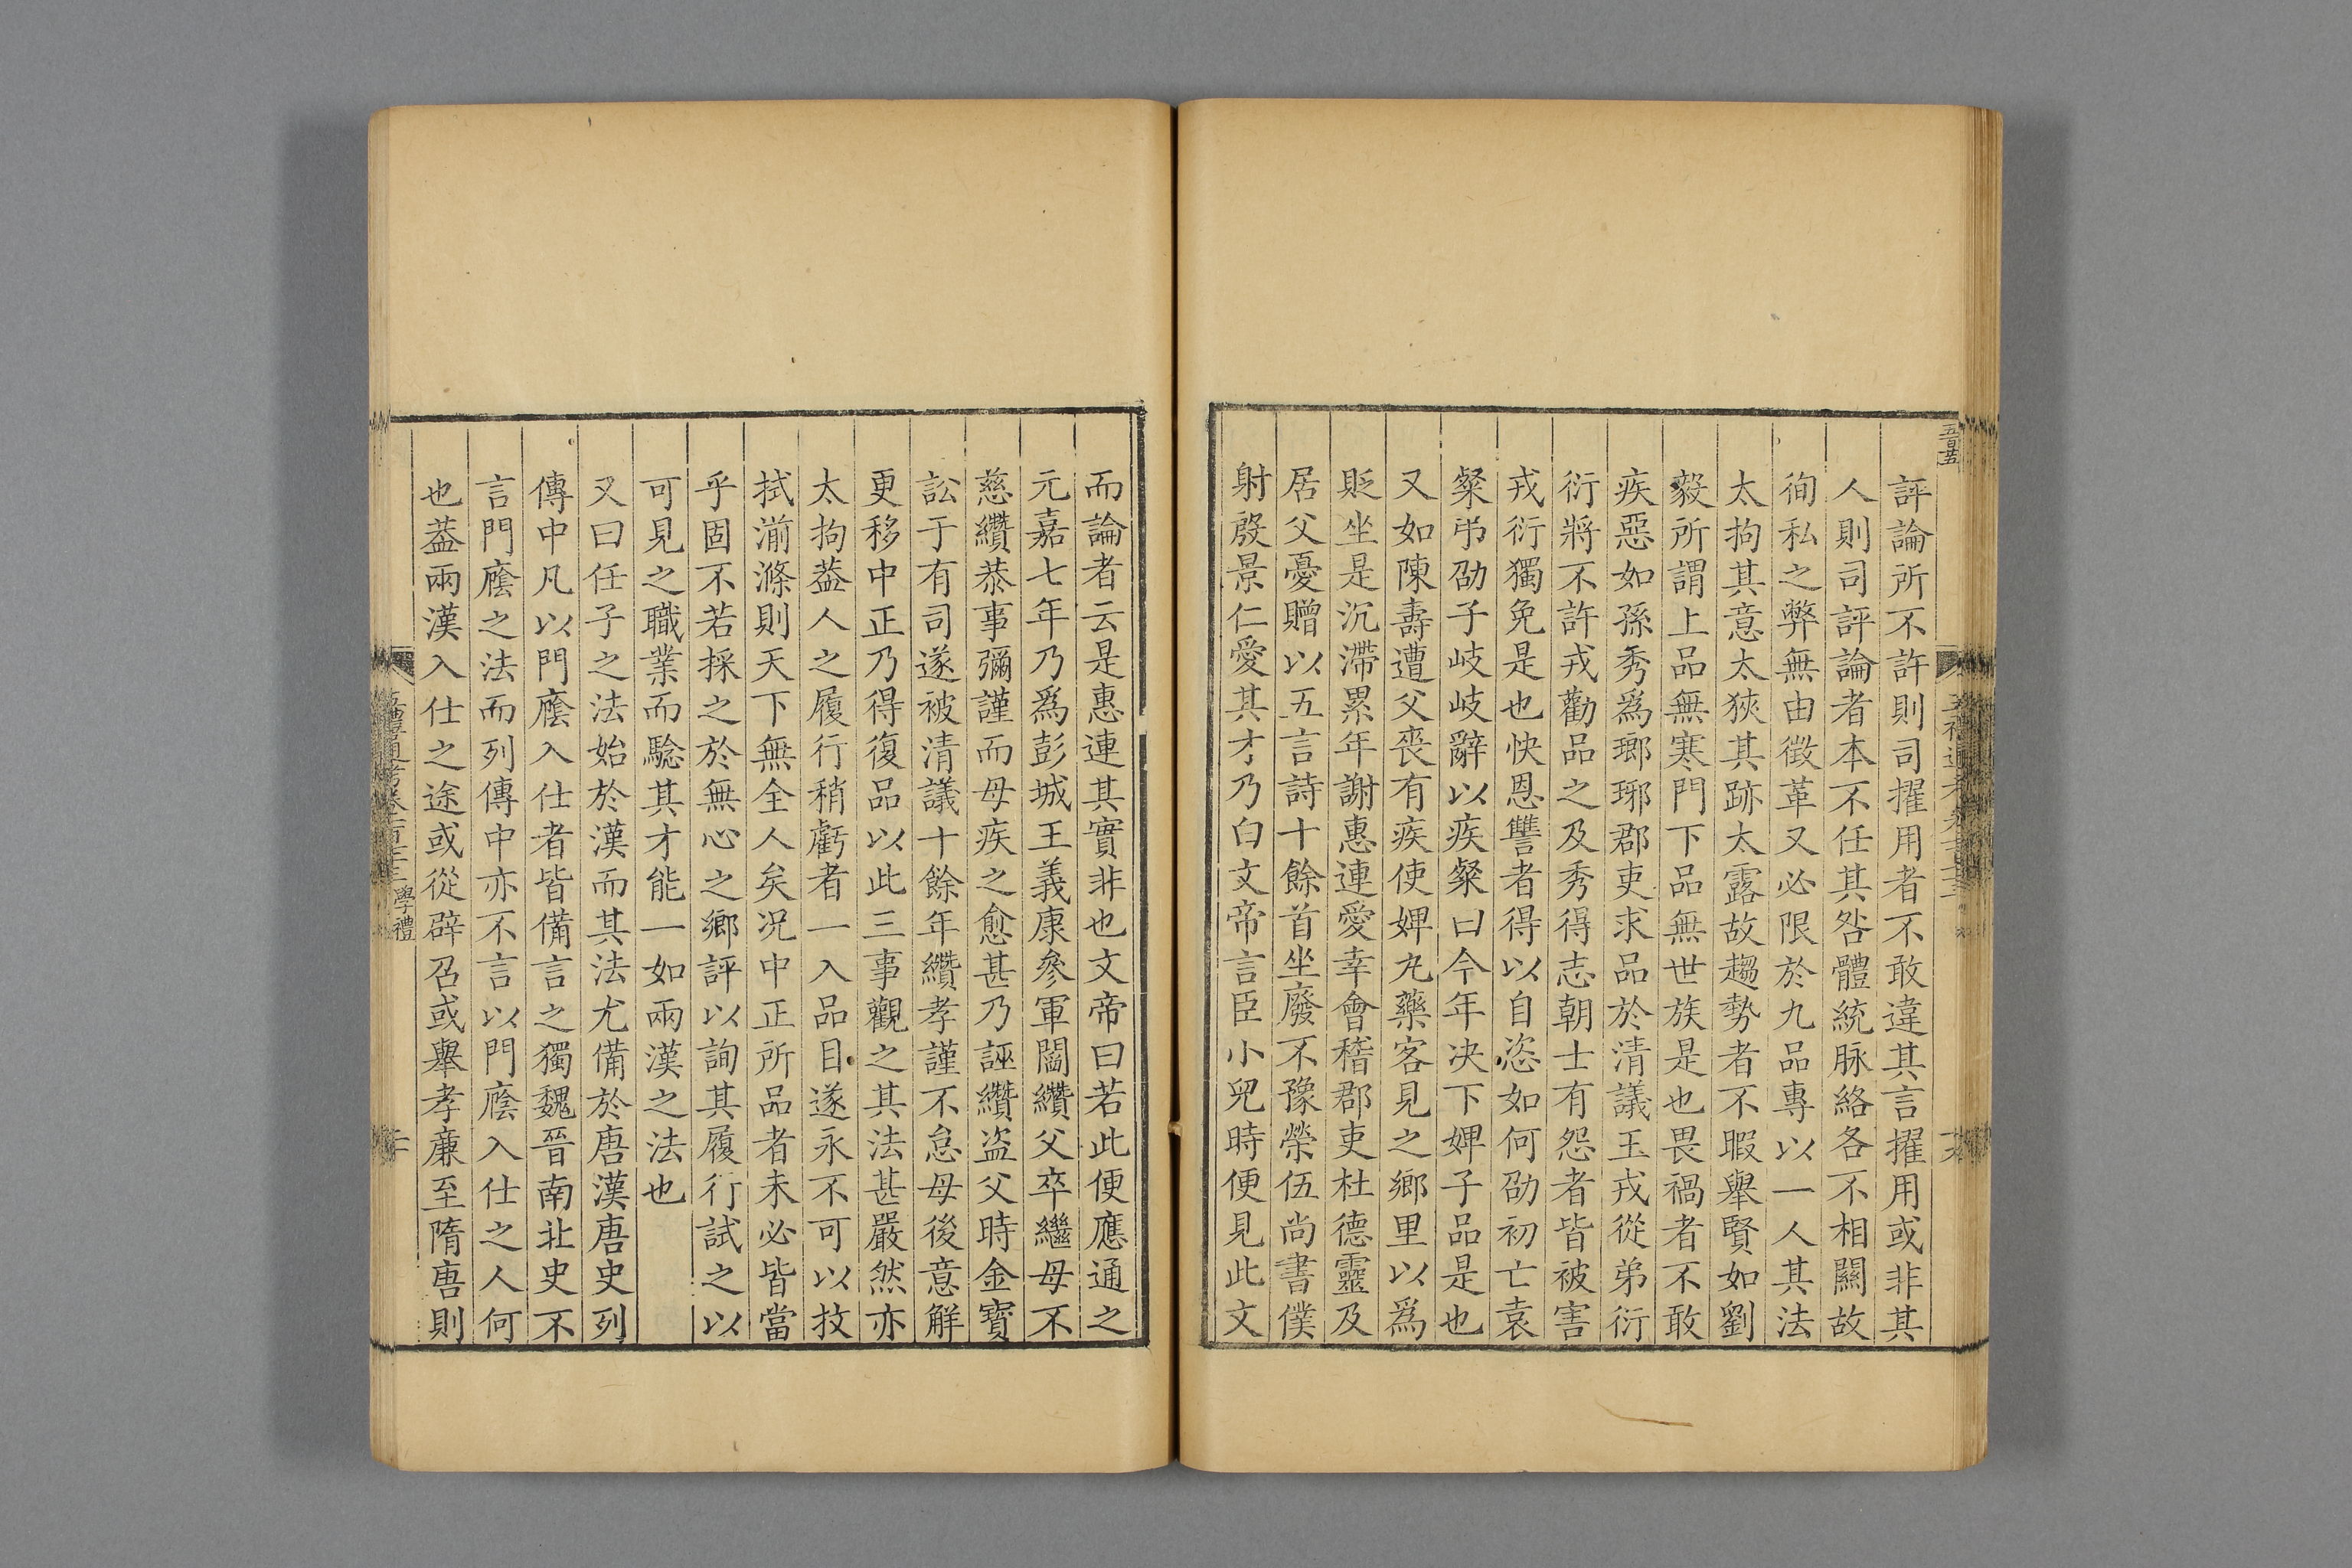 評論所不許則司擢用者不敢違其言擢用或非其
人則司評論者本不任其咎體統脉絡各不相關故
徇私之弊無由徵革又必限於九品專以一人其法
太拘其意太狹其跡太露故趨勢者不暇舉賢如劉
毅所謂上品無寒門下品無世族是也畏禍者不敢
疾惡如孫秀爲瑯琊郡吏求品於清議王戎從弟衍
衍將不許戎勸品之及秀得志朝士有怨者皆被害
戎衍獨免是也快恩讐者得以自恣如何劭初亡袁
粲弔劭子岐岐辭以疾粲曰今年决下婢子品是也
又如陳壽遭父喪有疾使婢丸藥客見之鄉里以爲
貶坐是沉滯累年謝惠連愛幸會稽郡吏杜德靈及
居父憂贈以五言詩十餘首坐廢不豫榮伍尚書僕
射殷景仁愛其才乃白文帝言臣小兒時便見此文
而論者云是惠連其實非也文帝曰若此便應通之
元嘉七年乃爲彭城王義康參軍閻纘父卒繼母不
慈纘恭事彌謹而母疾之愈甚乃誣纘盜父時金寶
訟于有司遂被清議十餘年纘孝謹不怠母後意解
更移中正乃得復品以此三事觀之其法甚嚴然亦
太拘葢人之履行稍虧者一入品目遂永不可以技
拭湔滌則天下無全人矣况中正所品者未必皆當
乎固不若採之於無心之鄉評以詢其履行試之以
可見之職業而驗其才能一如兩漢之法也
又曰任子之法始於漢而其法尤備於唐漢唐史列
傳中凡以門廕入仕者皆備言之獨魏晉南北史不
言門廕之法而列傳中亦不言以門廕入仕之人何
也葢兩漢入仕之途或從辟召或舉孝廉至隋唐則
學禮